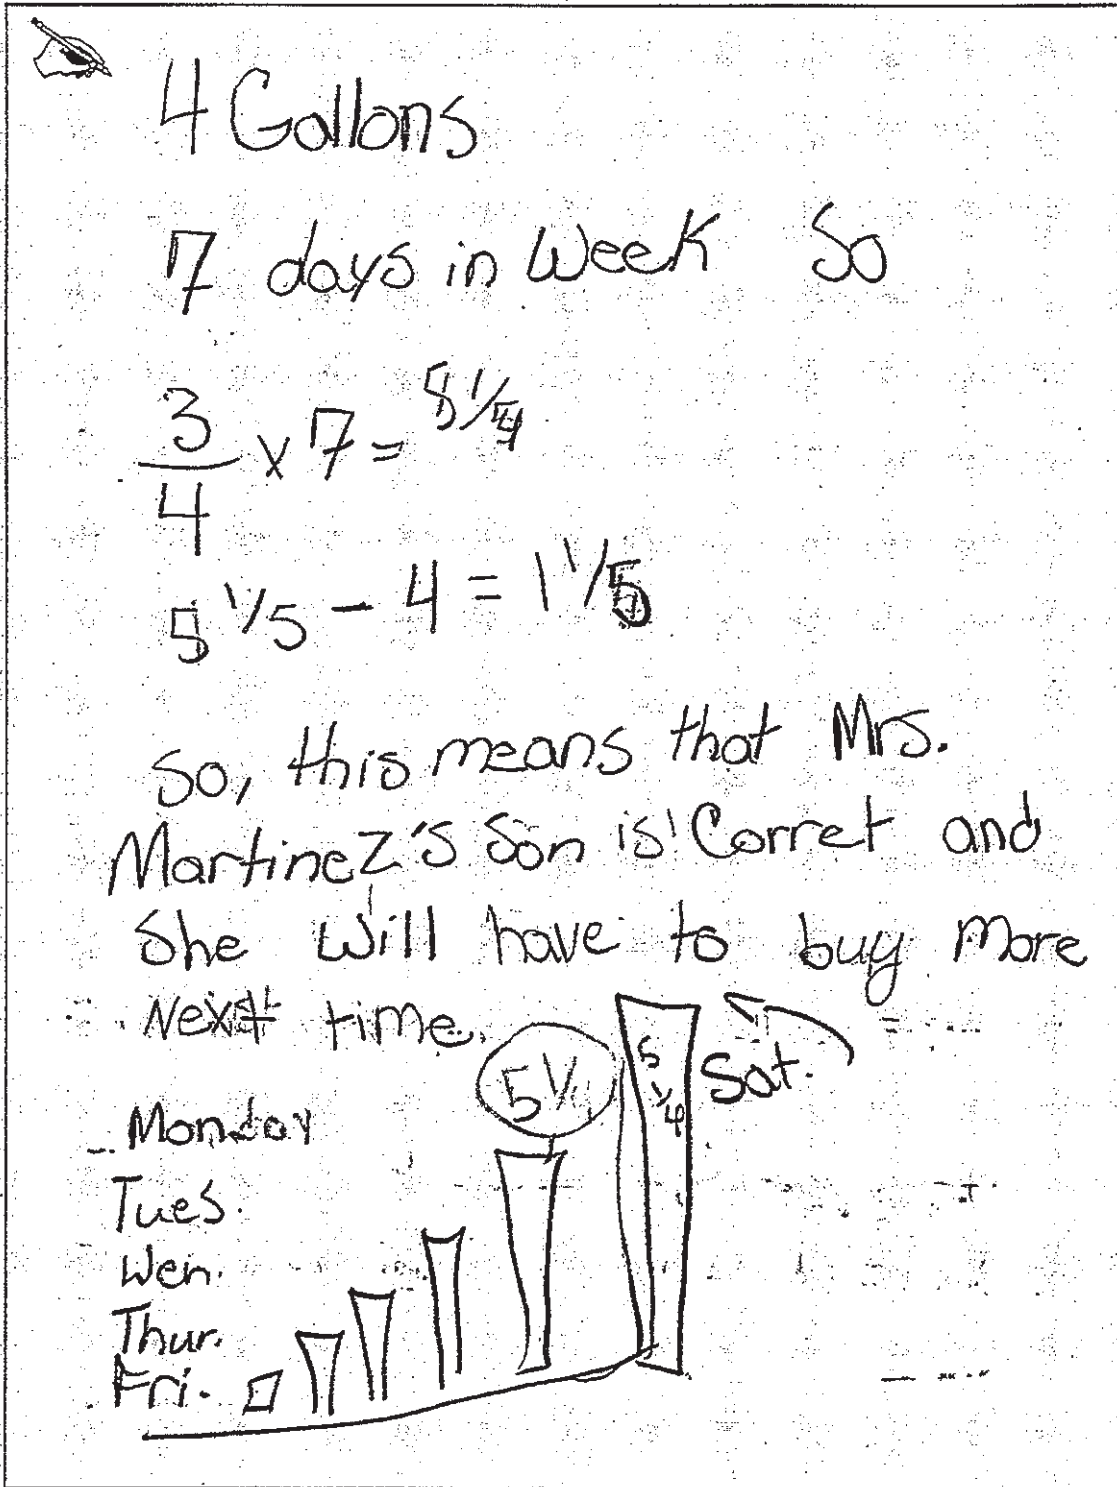 4 Gallons
7 days in Week So
3/4 x 7 = 5 1/4
5 1/5 - 4 = 1 1/5
So, this means that Mrs.
Martinez's Son is Corret and
She Will have to buy More
Next time.
5 1/
5 1/4
Sat.
Monday
Tues.
Wen.
Thur.
Fri.